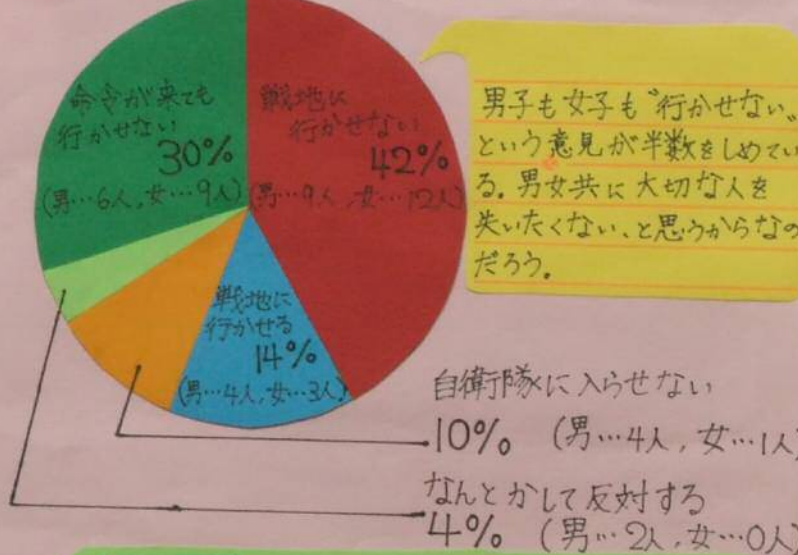 命令が来ても
行かせない
30%
(男…6人,女…9人)
戦地に
行かせない
42%
(男…9人,女…12人)
戦地に
行かせる
14%
(男…4人,女…3人)
男子も女子も〝行かせない〟
という意見が半数をしめてい
る。男女共に大切な人を
失いたくない、と思うからなの
だろう。
自衛隊に入らせない
10% (男…4人,女…1人)
なんとかして反対する
4% (男…2人,女…0人)